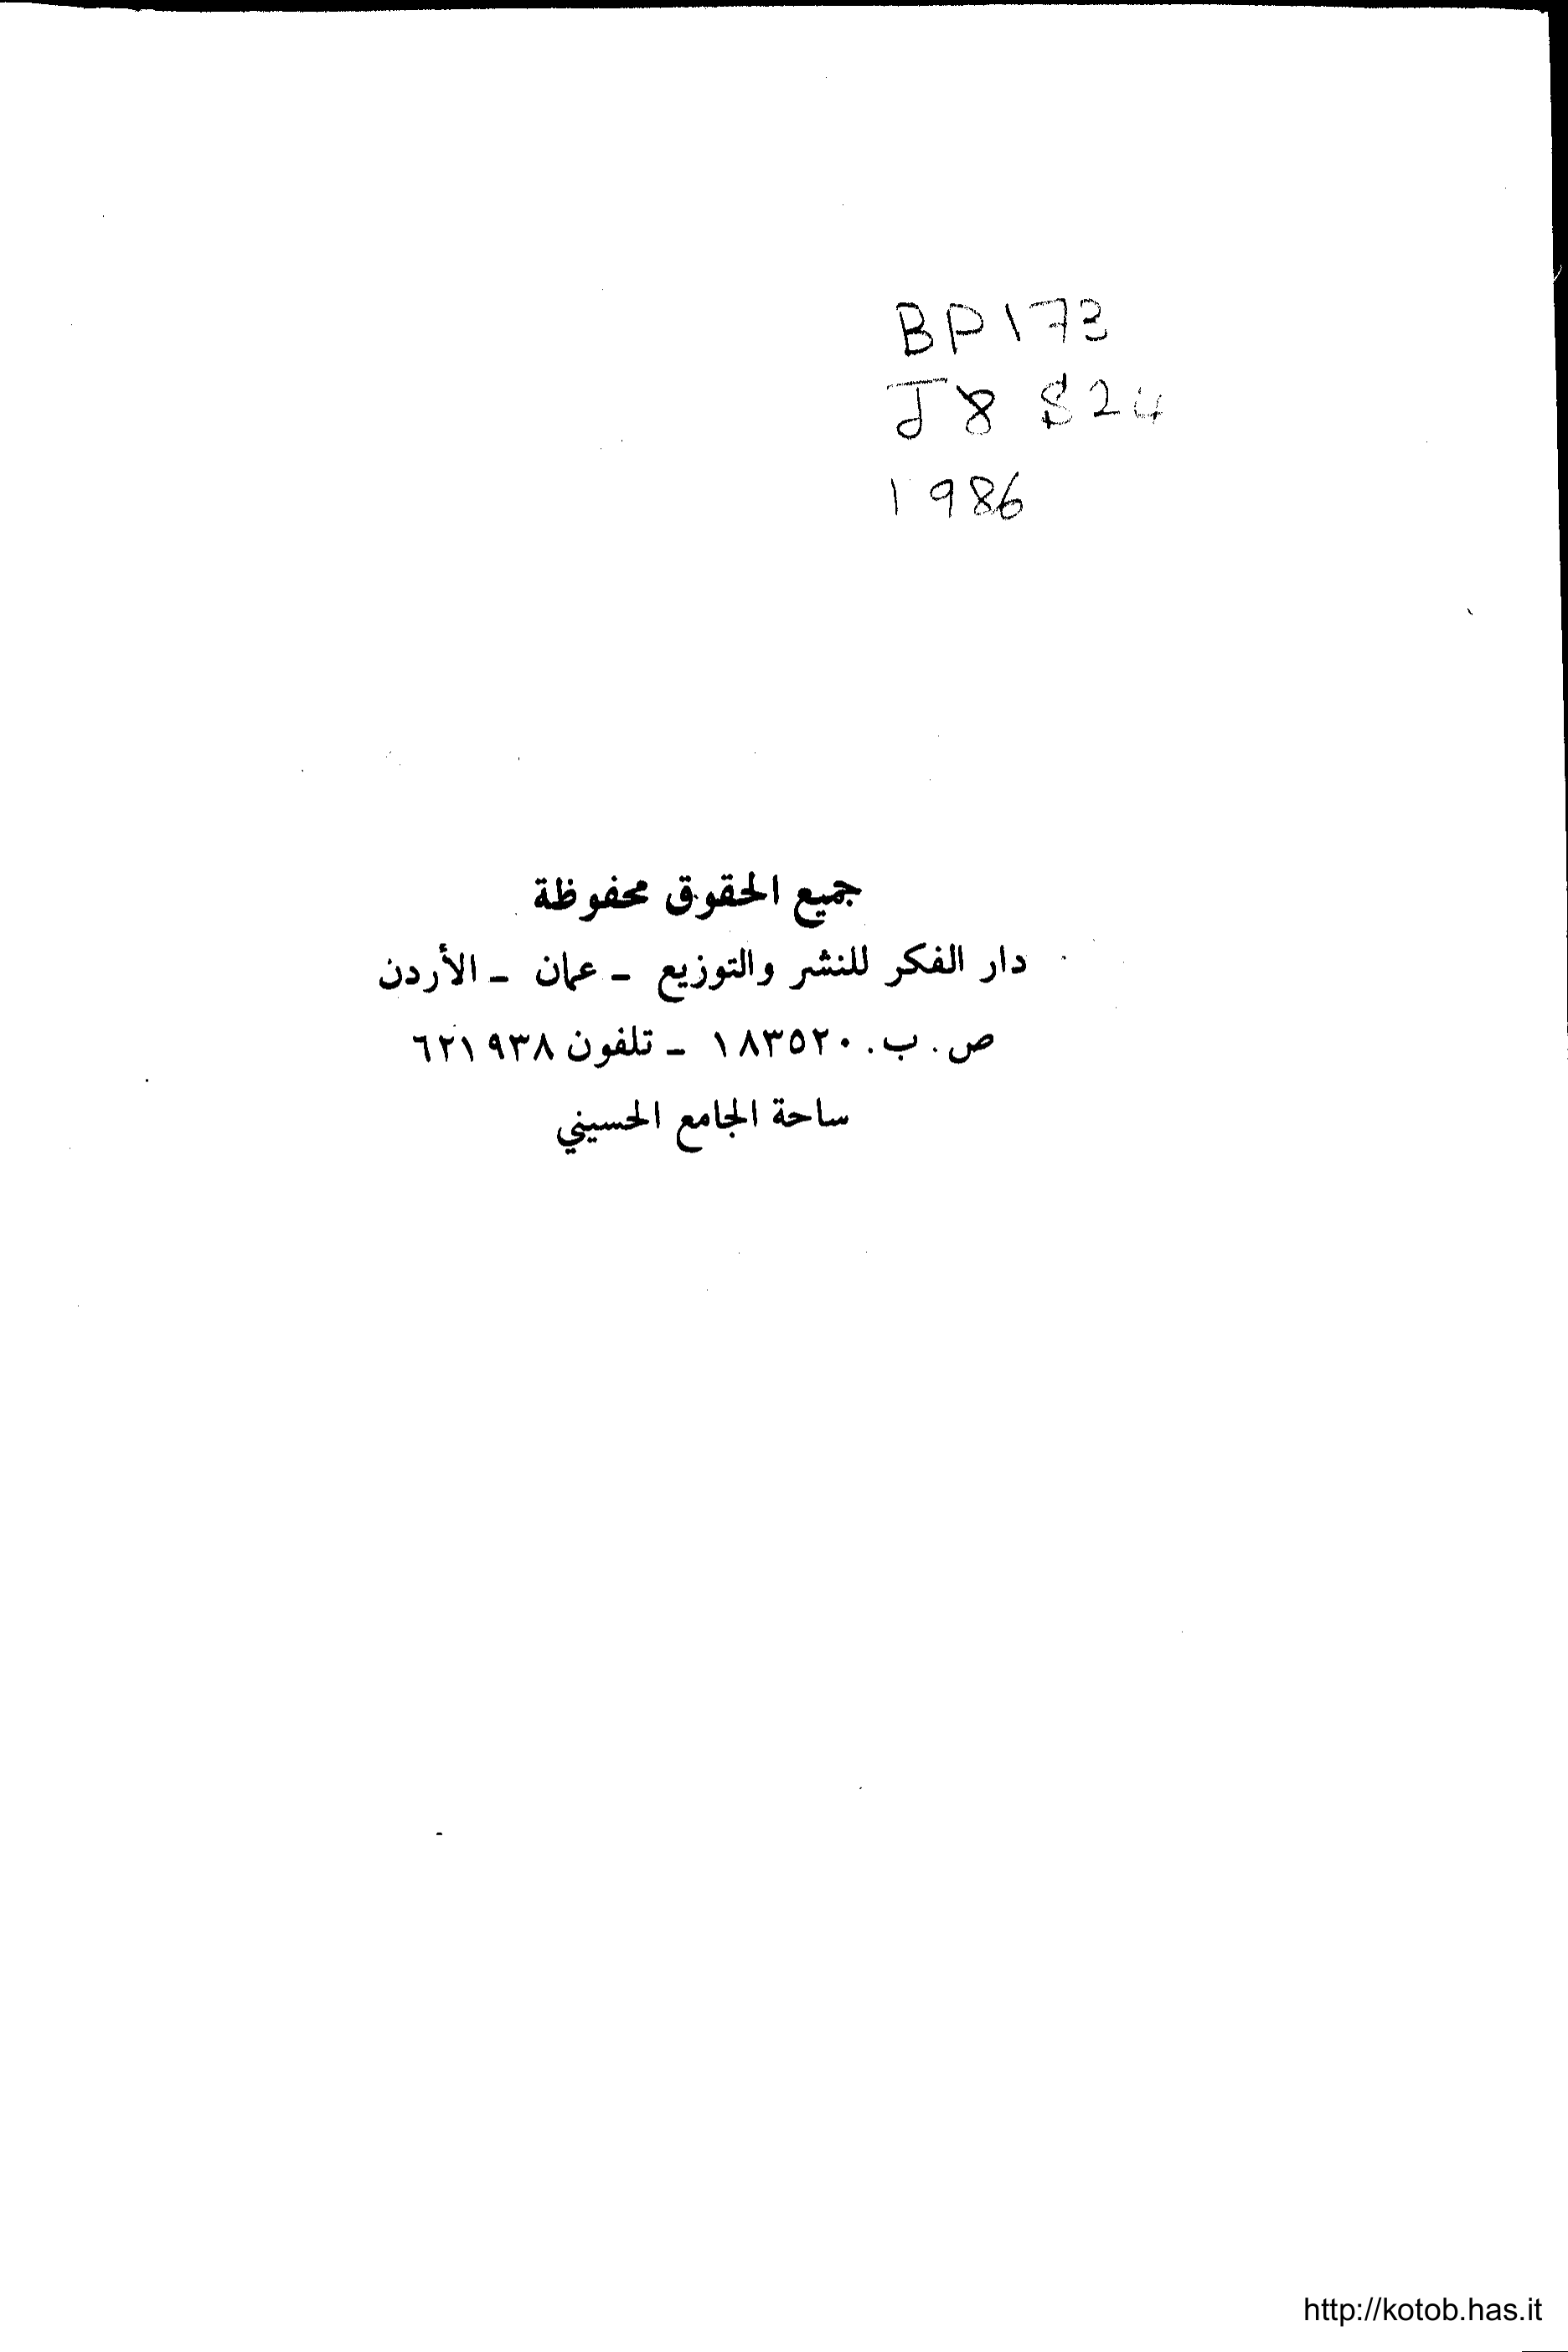 BP173
J8 S24
1986
جميع الحقوق محفوظة
دار الفكر للنشر والتوزيع - عمان - الأردن
ص. ب. ١٨٣٥٢٠ - تلفون ٦٢١٩٣٨
ساحة الجامع الحسيني
http://kotob.has.it